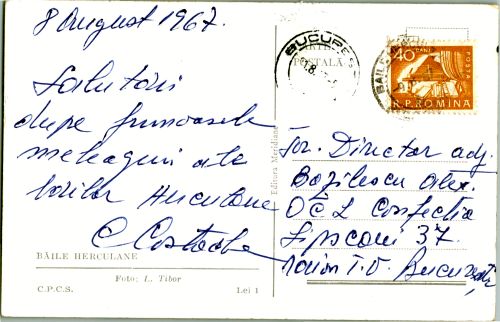 8 August 1967.
CARTE
POSTALĂ
BUCUREȘ
40 BANI
POSTA
R.P.ROMINA
BĂILE
Salutări
dupe frumoasele
meleaguri ale
băilor Herculane
C Costache
Editura Meridiane
Tov. Director adj.
Bazilescu Alex.
O C L Confectia
Lipscani 37.
raion T.V. București
BĂILE HERCULANE
Foto: L. Tibor
C.P.C.S.
Lei 1